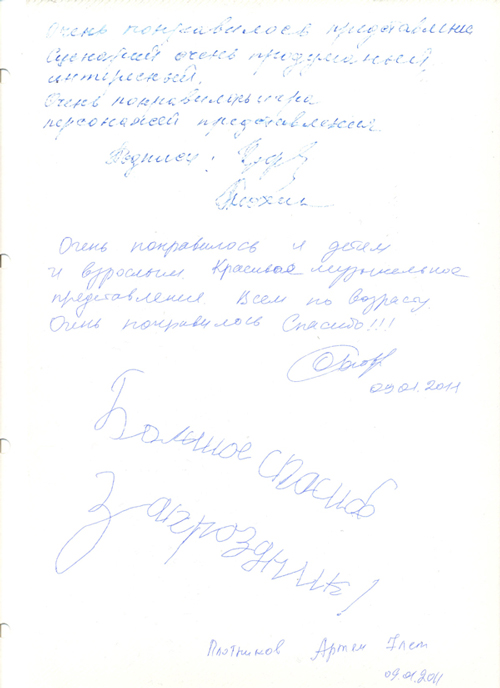 Очень понравилося представление
Сценарий очень продуманый,
интересный.
Очень понравилась игра
персонажей представления.
Подписи:
Очень понравилось и детям
и взрослым Красивое музыкальное
представление Всем по возрасту.
Очень понравилось Спасибо!!!
09.01.2011
Большое спасибо
За праздник!
Плотников Артем 7 лет
09.01.2011